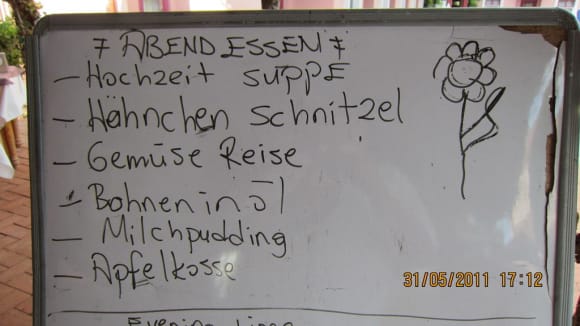 ABENDESSEN
- Hochzeit suppE
- Hähnchen schnitzel
- Gemüse Reise
- Bohnen in öl
- Milchpudding
- Apfelkosse
31/05/2011 17:12